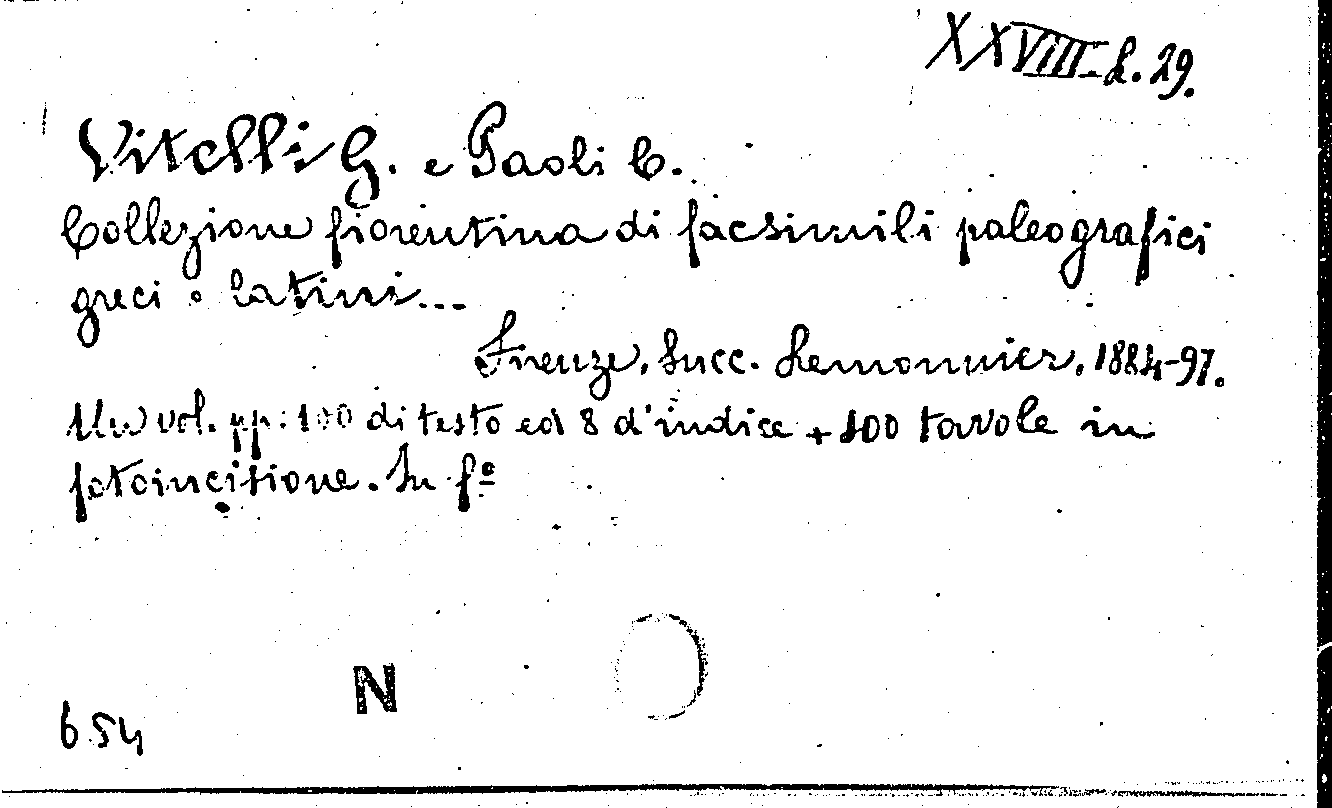 XXVIII. L. 29.
Vitelli G. e Paoli C.
Collezione fiorentina di facsimili paleografici
greci e latini...
Firenze, Succ. Lemonnier, 1884-97.
Un vol. pp. 100 di testo ed 8 d'indice + 100 tavole in
fotoincisione. In fº
N
654